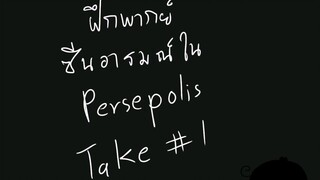 ฝึกพากย์
ซีนอารมณ์ใน
Persepolis
Take #1